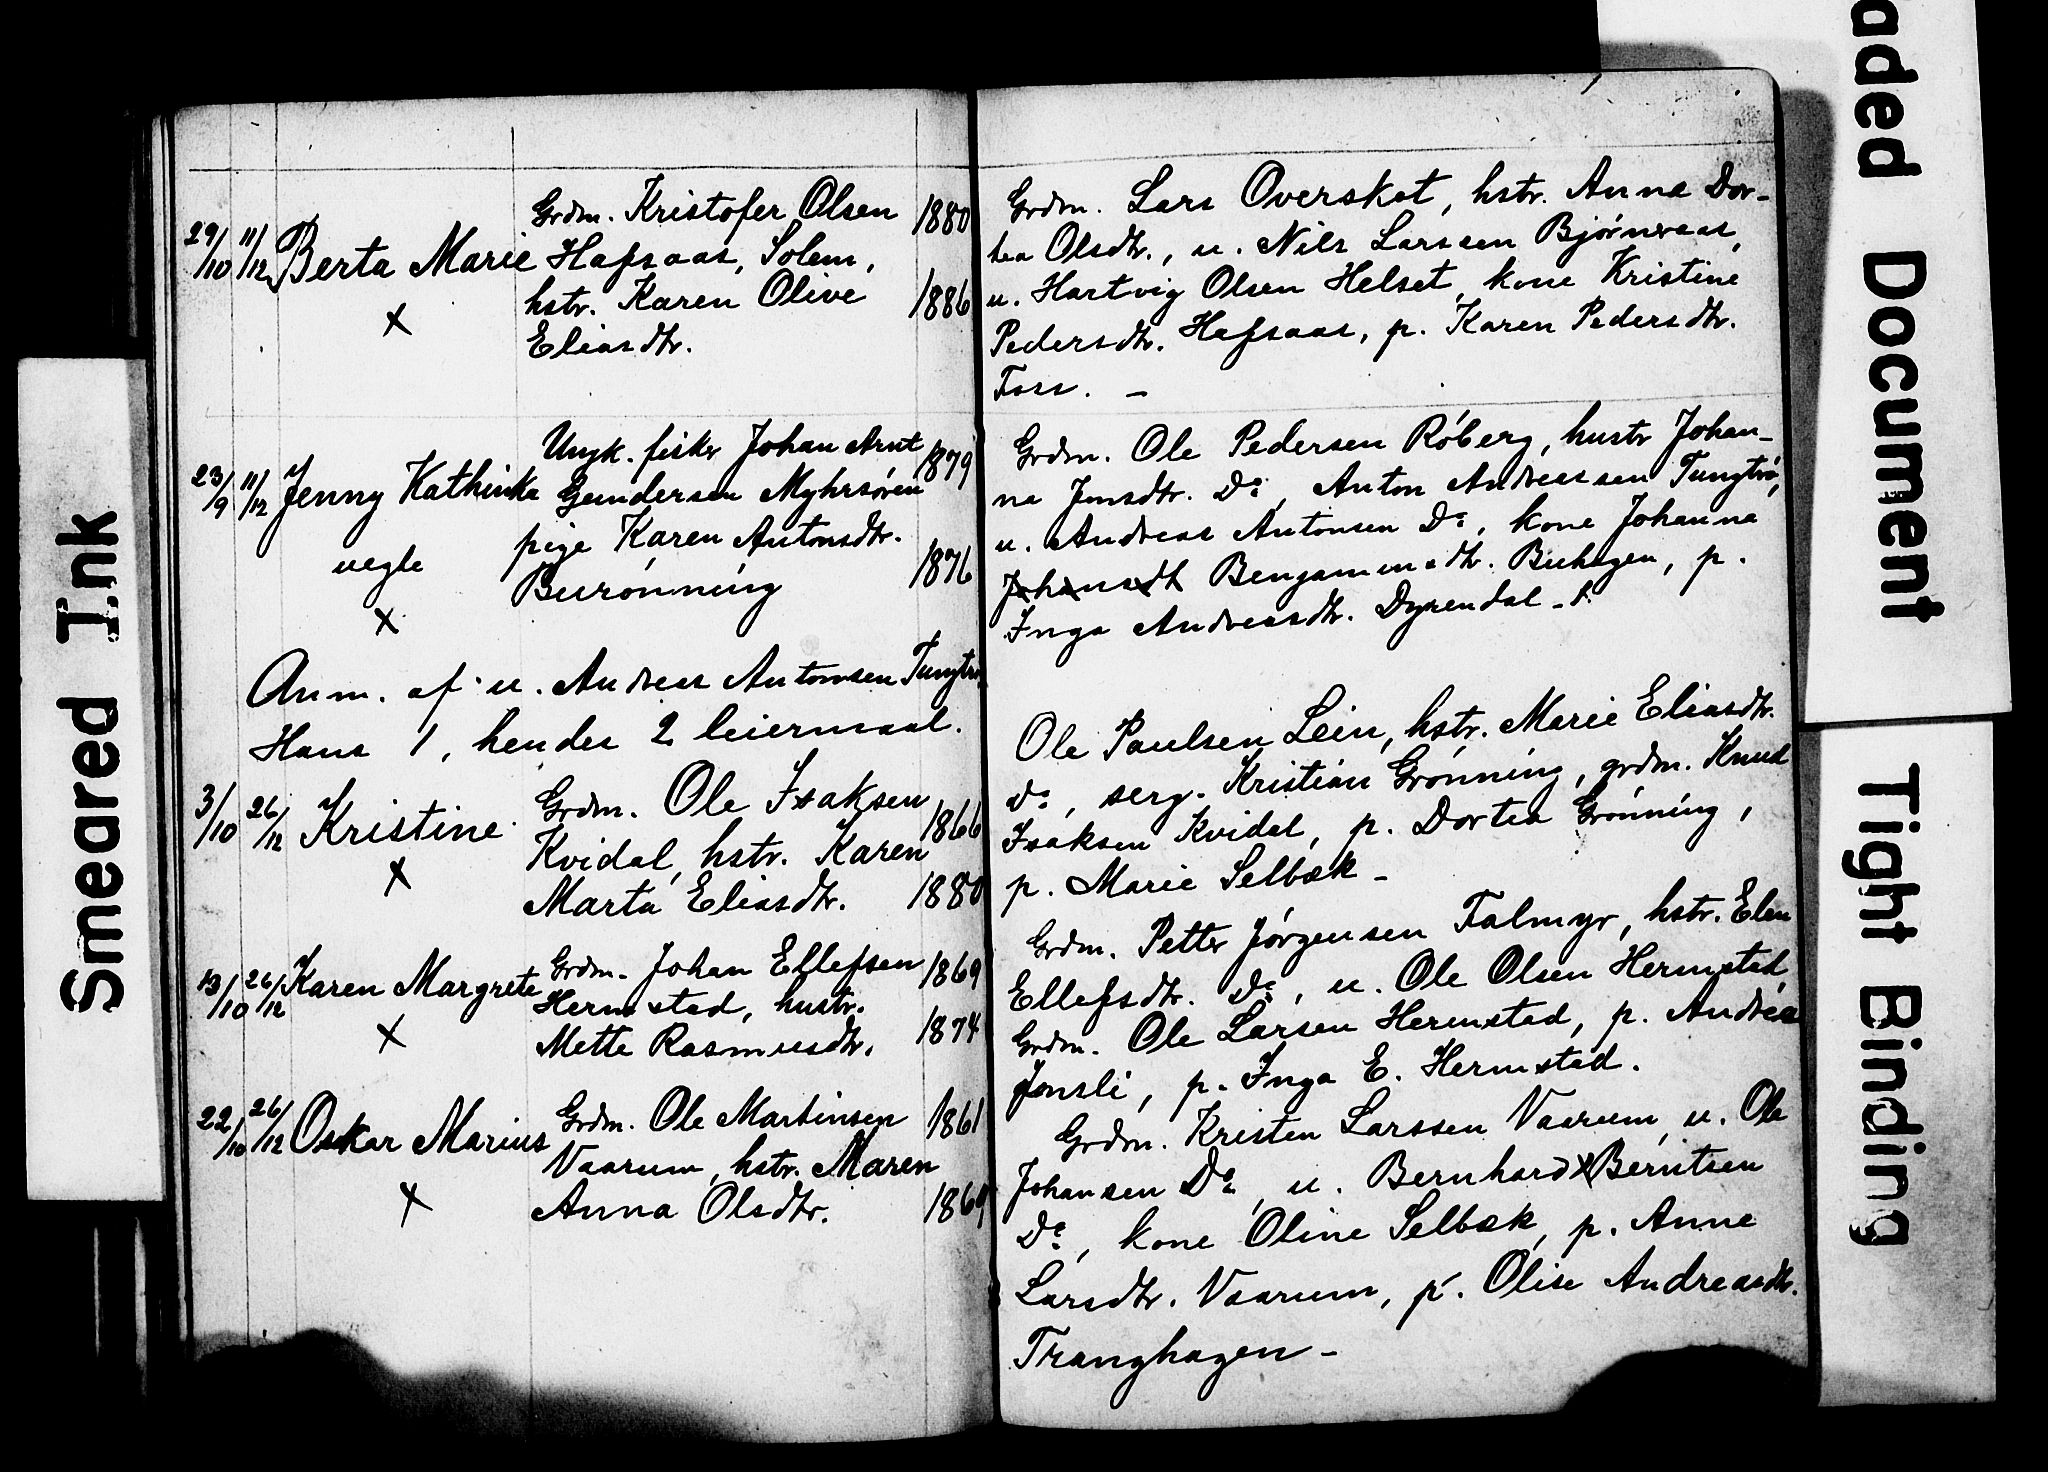 29/10 11/12 Berta Marie
×
Grdm. Kristofer Olsen 1880
Hafsaas, Solem,
hstr. Karen Olive 1886
Eliasdtr.
Grdm. Lars Overskot, hstr. Anna Dor-
tea Olsdtr., u. Nils Larssen Bjørnraas,
u. Hartvig Olsen Helset, kone Kristine
Pedersdtr. Hafsaas, p. Karen Pedersdtr.
Foss. –
23/9 11/12 Jenny Kathinka
uegte
×
Ungk. fisker Johan Arnt 1879
Gundersen Myhrsøren
pige Karen Antonsdtr.
Burønning 1876
Grdm. Ole Pedersen Røberg, hustr Johan-
na Jonsdtr. Do, Anton Andreassen Tungtrø,
u. Andreas Antonsen Do, kone Johanna
Johansdt Benjaminsdtr. Buhagen, p.
Inga Andreasdtr. Dyrendal –
Anm. af u. Andreas Antonsen Tungtrø
Hans 1, hendes 2 leiermaal.
3/10 26/12 Kristine
×
Grdm. Ole Isaksen 1866
Kvidal, hstr. Karen
Marta Eliasdtr. 1880
Ole Paulsen Lein, hstr. Marie Eliasdtr.
do, serg. Kristian Grønning, grdm. Knud
Isaksen Kvidal, p. Dortea Grønning,
p. Marie Selbæk –
13/10 26/12 Karen Margrete
×
Grdm. Johan Ellefsen 1869
Hermstad, hustr.
Mette Rasmusdtr. 1874
Grdm. Petter Jørgensen Falmyr, hstr. Elen
Ellefsdtr. Do, u. Ole Olsen Hermstad,
Grdm. Ole Larsen Hermstad, p. Andrea
Jonsli, p. Inga E. Hermstad.
22/10 26/12 Oskar Marius
×
Grdm. Ole Martinsen 1861
Vaarum, hstr. Maren
Anna Olsdtr. 1869
Grdm. Kristen Larssen Vaarum, u. Ole
Johansen Do, u. Bernhard × Berntsen
Do, kone Oline Selbæk, p. Anne
Larsdtr. Vaarum, p. Olise Andreasdtr.
Tranghagen –
Smeared Ink
aded Document
Tight Binding